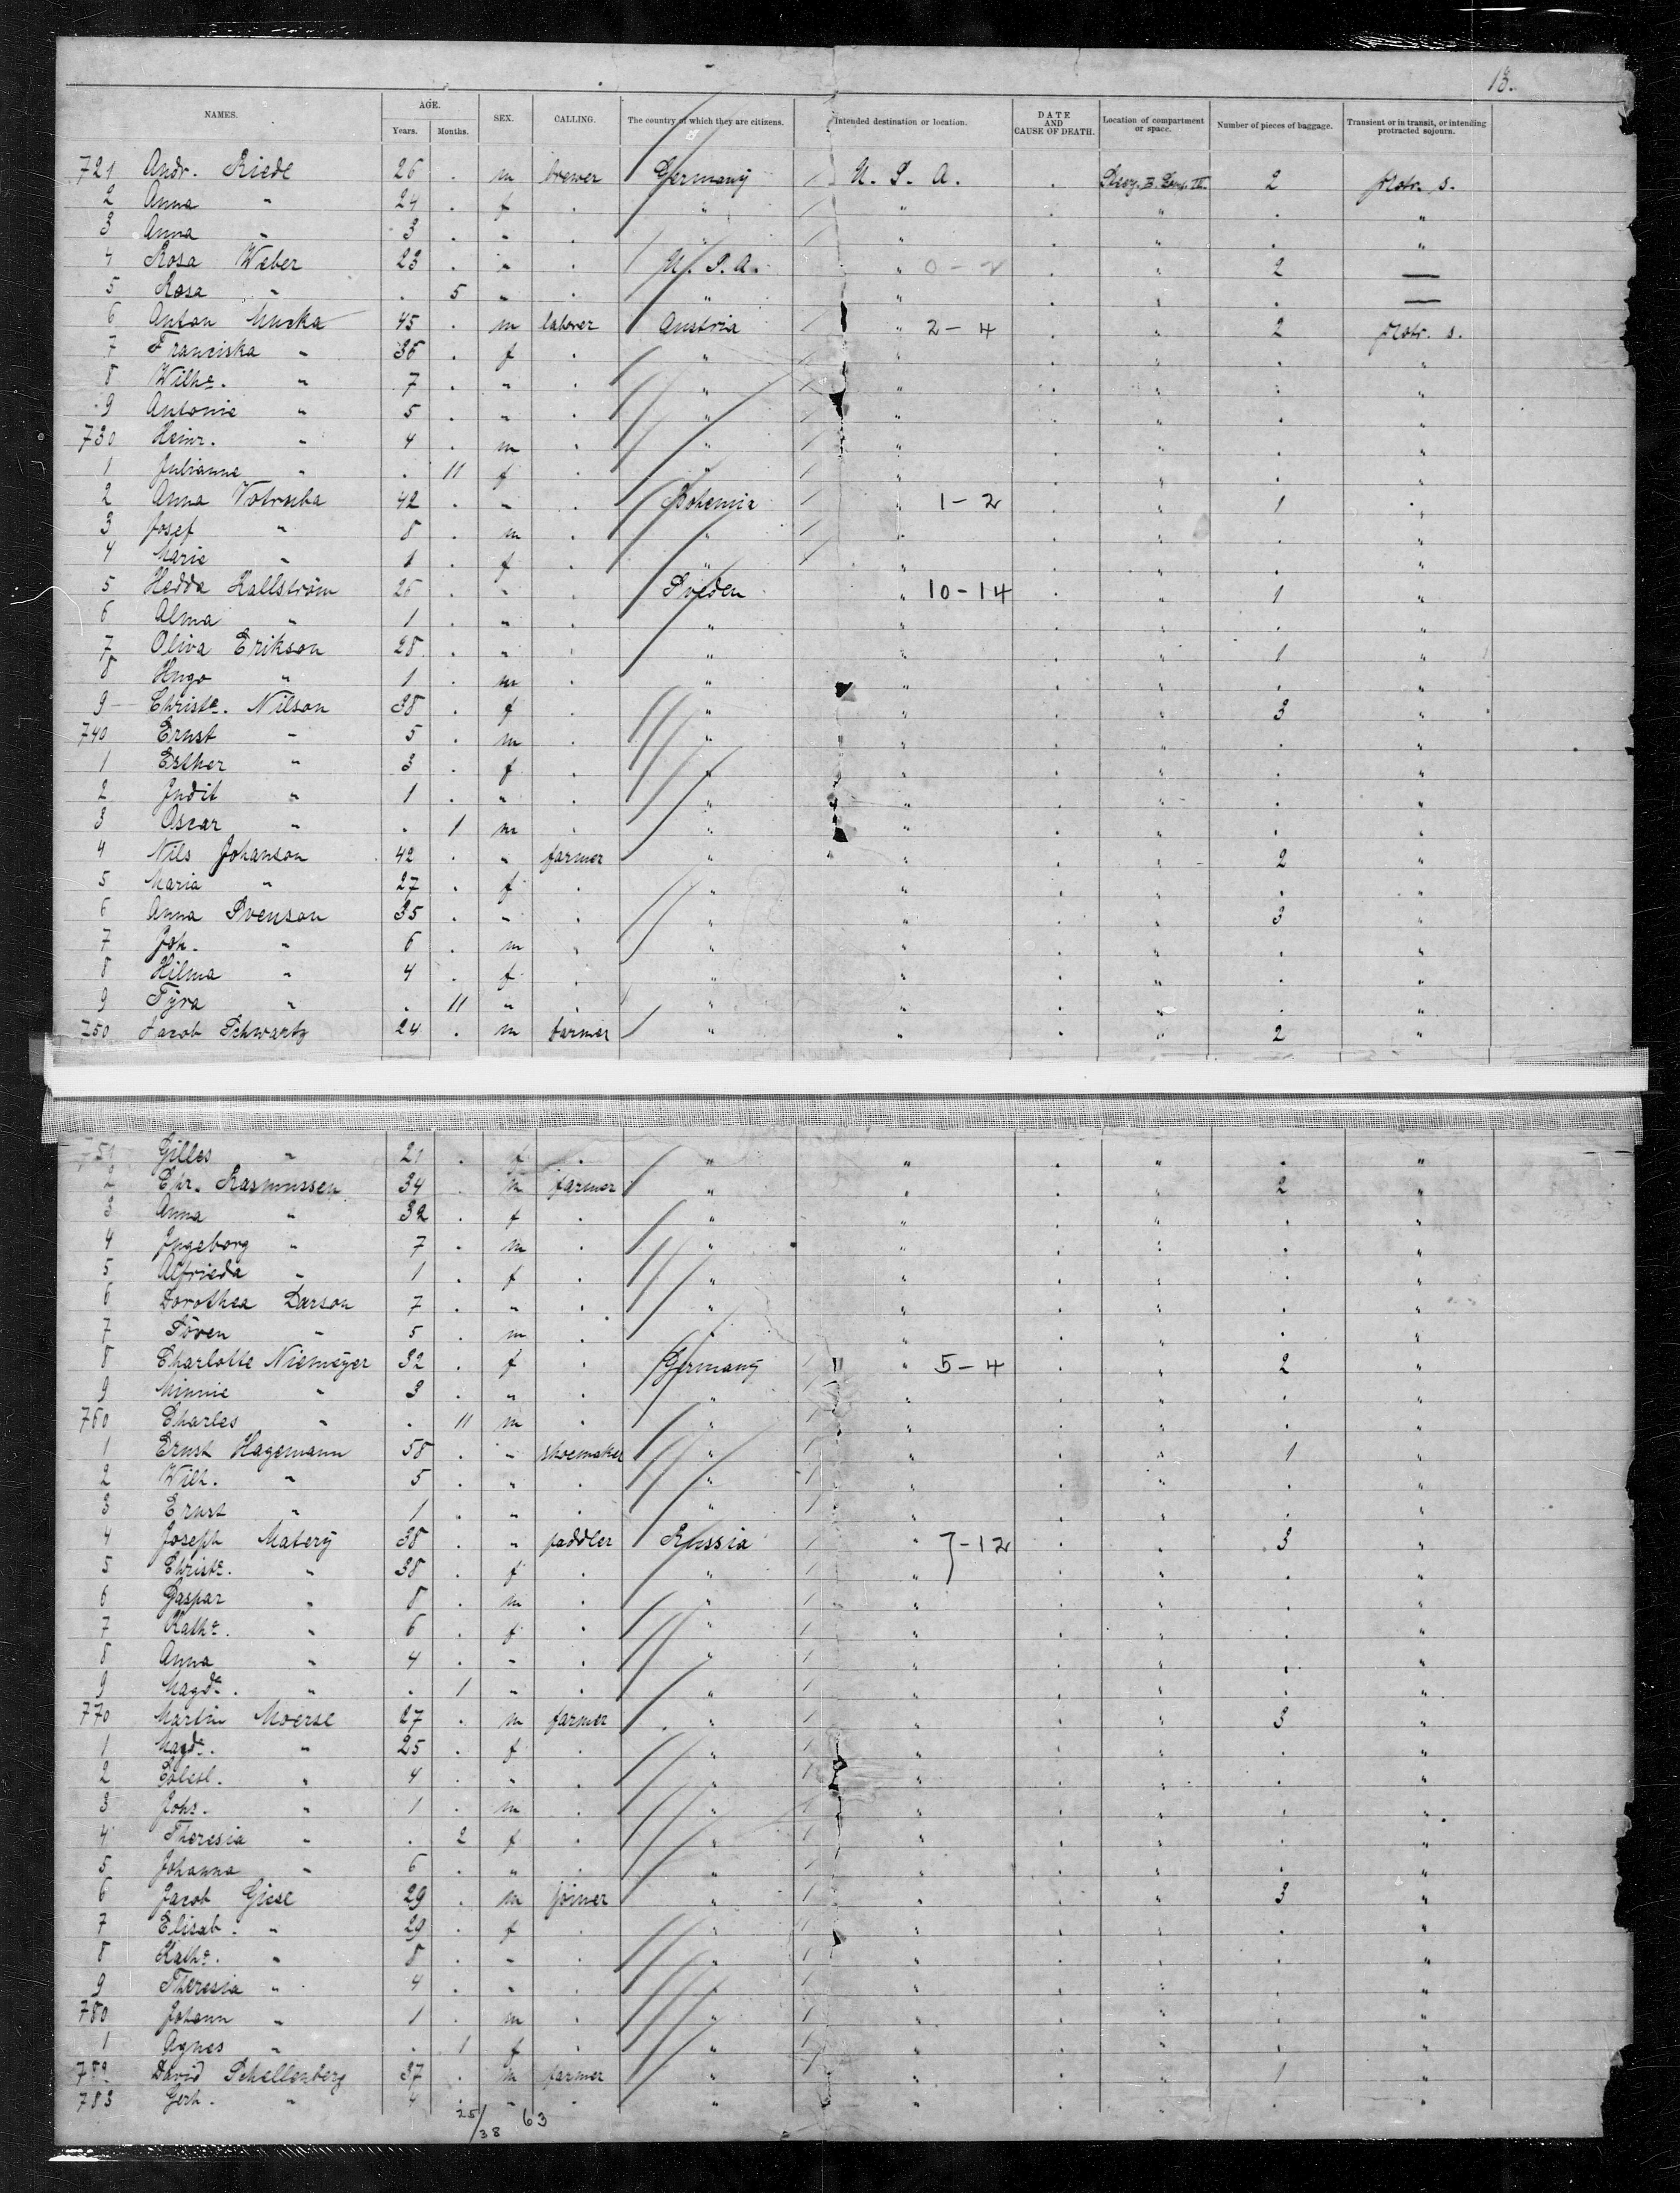 13.
NAMES. AGE. Years. Months. SEX. CALLING. The country of which they are citizens. Intended destination or location. DATE AND CAUSE OF DEATH. Location of compartment or space. Number of pieces of baggage. Transient or in transit, or intending protracted sojourn.
721 Andr. Riede 26 . m brewer Germany U. S. A. . 2 protr. s.
2 Anna " 24 . f . " " . " . "
3 Anna " 3 . " . " " . " . "
4 Rosa Weber 23 . " . U. S. A. " 0-2 . " 2 —
5 Rosa " . 5 " . " " . " . —
6 Anton Mucka 45 . m laborer Austria " 2-4 . " 2 protr. s.
7 Franciska " 36 . f . " " . " . "
8 Wilhe. " 7 . " . " " . " . "
9 Antonie " 5 . " . " " . " . "
730 Heinr. " 4 . m . " " . " . "
1 Julianne " . 11 f . " " . " . "
2 Anna Votruba 42 . " . Bohemia " 1-2 . " 1 "
3 Josef " 8 . m . " " . " . "
4 Marie " 1 . f . " " . " . "
5 Hedda Kallström 26 . " . Sveden " 10-14 . " 1 "
6 Alma " 1 . " . " " . " . "
7 Oliva Erikson 28 . " . " " . " 1 "
8 Hugo " 1 . m . " " . " . "
9 Christe. Nilson 38 . f . " " . " 3 "
740 Ernst " 5 . m . " " . " . "
1 Esther " 3 . f . " " . " . "
2 Judit " 1 . " . " " . " . "
3 Oscar " . 1 m . " " . " . "
4 Nils Johanson 42 . " farmer " " . " 2 "
5 Maria " 27 . f . " " . " . "
6 Anna Svenson 35 . " . " " . " 3 "
7 Joh. " 6 . m . " " . " . "
8 Hilma " 4 . f . " " . " . "
9 Tÿra " . 11 " . " " . " . "
750 Jacob Schwartz 24 . m farmer " " . " 2 "
751 Gilles " 21 . f . " " . " . "
2 Chr. Rasmussen 34 . m farmer " " . " 2 "
3 Anna " 32 . f . " " . " . "
4 Ingeborg " 7 . m . " " . " . "
5 Alfrieda " 1 . f . " " . " . "
6 Dorothea Larson 7 . " . " " . " . "
7 Sören " 5 . m . " " . " . "
8 Charlotte Niemeÿer 32 . f . Germany " 5-4 . " 2 "
9 Minnie " 3 . " . " " . " . "
760 Charles " . 11 m . " " . " . "
1 Ernst Hagemann 58 . " shoemaker " " . " 1 "
2 Wilh. " 5 . " . " " . " . "
3 Ernst " 1 . " . " " . " . "
4 Joseph Materÿ 38 . " paddler Russia " 7-12 . " 3 "
5 Christe. " 38 . f . " " . " . "
6 Gaspar " 8 . m . " " . " . "
7 Kathe. " 6 . f . " " . " . "
8 Anna " 4 . " . " " . " . "
9 Magde. " . 1 " . " " . " . "
770 Martin Moerse 27 . m farmer " " . " 3 "
1 Magde. " 25 . f . " " . " . "
2 " 4 . " . " " . " . "
3 Johs. " 1 . m . " " . " . "
4 Theresia " . 2 f . " " . " . "
5 Johanna " 6 . " . " " . " . "
6 Jacob Giese 29 . m joiner " " . " 3 "
7 Elisab. " 29 . f . " " . " . "
8 Kathe. " 8 . " . " " . " . "
9 Theresia " 4 . " . " " . " . "
780 Johann " 1 . m . " " . " . "
1 Agnes " . 1 f . " " . " . "
782 David Schellenberg 37 . m farmer " " . " 1 "
783 Gerh. " 4 . " . " " . " . "
25/38 63